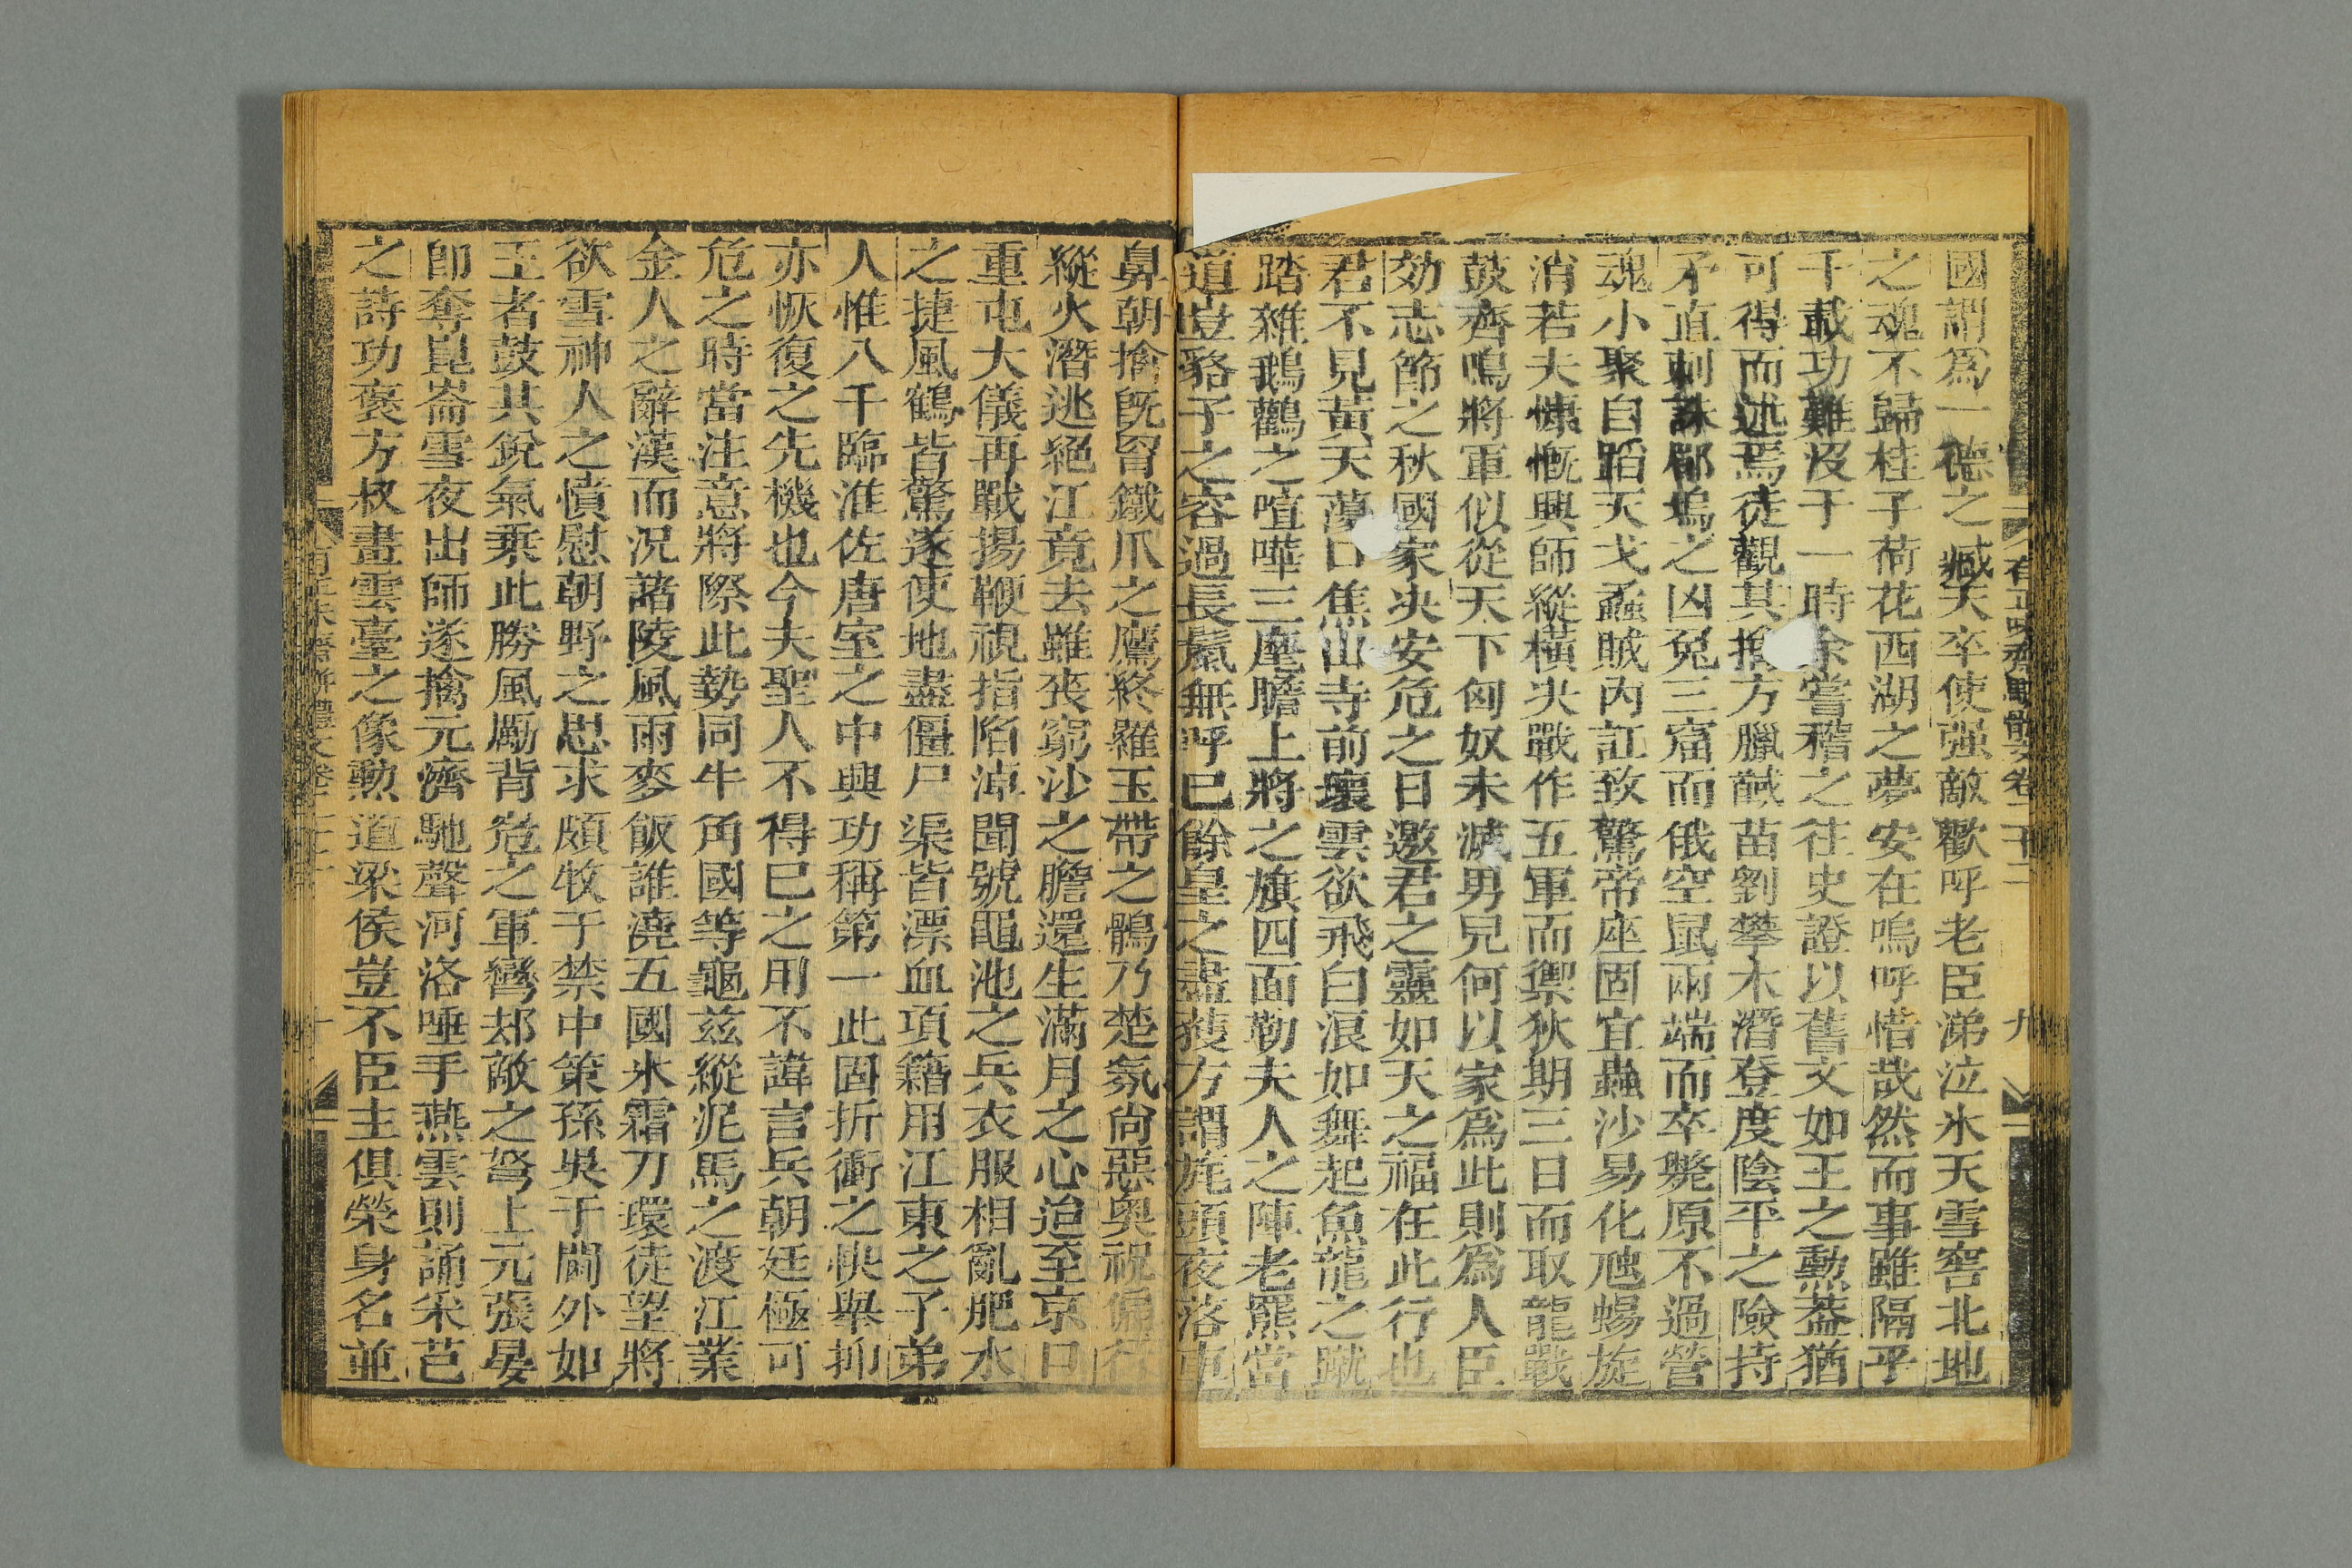 國謂爲一德之臧天卒使强敵歡呼老臣涕泣氷天雪窖北地
之魂不歸桂子荷花西湖之夢安在嗚呼惜哉然而事雖隔乎
千載功難沒于一時余嘗稽之往史證以舊文如王之勲葢猶
可得而述焉徒觀其擒方臘馘苗劉攀木潛登度陰平之險持
矛直刺誅郿塢之凶兔三窟而俄空鼠兩端而卒斃原不過營
魂小聚自蹈天戈蟊賊內訌致驚帝座固宜蟲沙易化虺蜴旋
消若夫慷慨興師縱橫决戰作五軍而禦狄期三日而取龍戰
鼓齊鳴將軍似從天下匈奴未滅男兒何以家爲此則爲人臣
効志節之秋國家决安危之日邀君之靈如天之福在此行也
君不見黃天蕩口焦山寺前壞雲欲飛白浪如舞起魚龍之蹴
踏雜鵝鸛之喧嘩三座瞻上將之旗四面勒夫人之陣老羆當
道豈貉子之容過長鬣無呼已餘皇之盡獲方謂旄頭夜落
有正味齋駢體文卷二十二 九
鼻朝擒旣冐鐵爪之鷹終羅玉帶之鶻乃楚氛尙惡奥祝偏
縱火潛逃絕江竟去雖喪窮沙之膽還生滿月之心迨至京口
重屯大儀再戰揚鞭視指陷淖聞號黽池之兵衣服相亂肥水
之捷風鶴皆驚遂使地盡僵尸渠皆漂血項籍用江東之子弟
人惟八千臨淮佐唐室之中興功稱第一此固折衝之快舉抑
亦恢復之先機也今夫聖人不得已之用不諱言兵朝廷極可
危之時當注意將際此勢同牛角國等龜兹縱泥馬之渡江業
金人之辭漢而況諸陵風雨麥飯誰澆五國氷霜刀環徒望將
欲雪神人之憤慰朝野之思求頗牧于禁中策孫吳于閫外如
王者鼓其銳氣乗此勝風勵背嵬之軍彎刼敵之弩上元張晏
卽奪崑崙雪夜出師遂擒元濟馳聲河洛唾手燕雲則誦采芑
之詩功褒方叔畫雲臺之像勲道梁侯豈不臣主俱榮身名並